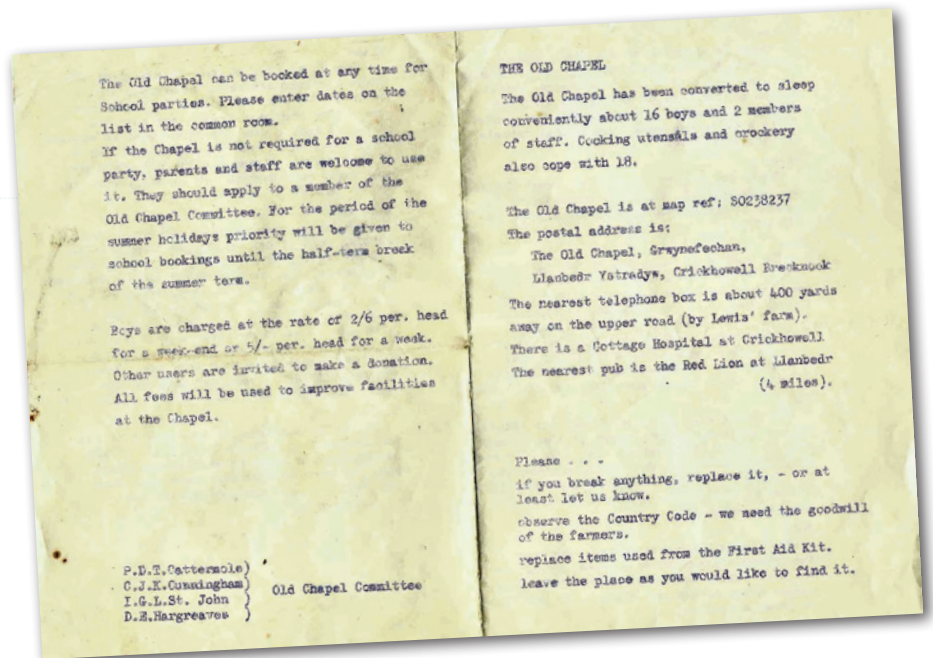 The Old Chapel can be booked at any time for
School parties. Please enter dates on the
list in the common room.
If the Chapel is not required for a school
party, parents and staff are welcome to use
it. They should apply to a member of the
Old Chapel Committee. For the period of the
summer holidays priority will be given to
school bookings until the half-term break
of the summer term.
Boys are charged at the rate of 2/6 per. head
for a week-end or 5/- per. head for a week.
Other users are invited to make a donation.
All fees will be used to improve facilities
at the Chapel.
P.D.T.Cattermole)
C.J.K.Cunningham)
I.G.L.St. John )
D.E.Hargreaves )
Old Chapel Committee
THE OLD CHAPEL
The Old Chapel has been converted to sleep
conveniently about 16 boys and 2 members
of staff. Cooking utensils and crockery
also cope with 18.
The Old Chapel is at map ref; SO238237
The postal address is;
The Old Chapel, Grwynefechan,
Llanbedr Ystradyw, Crickhowell Brecknock
The nearest telephone box is about 400 yards
away on the upper road (by Lewis' farm).
There is a Cottage Hospital at Crickhowell
The nearest pub is the Red Lion at Llanbedr
(4 miles).
Please . . .
if you break anything, replace it, - or at
least let us know.
observe the Country Code - we need the goodwill
of the farmers.
replace items used from the First Aid Kit.
leave the place as you would like to find it.